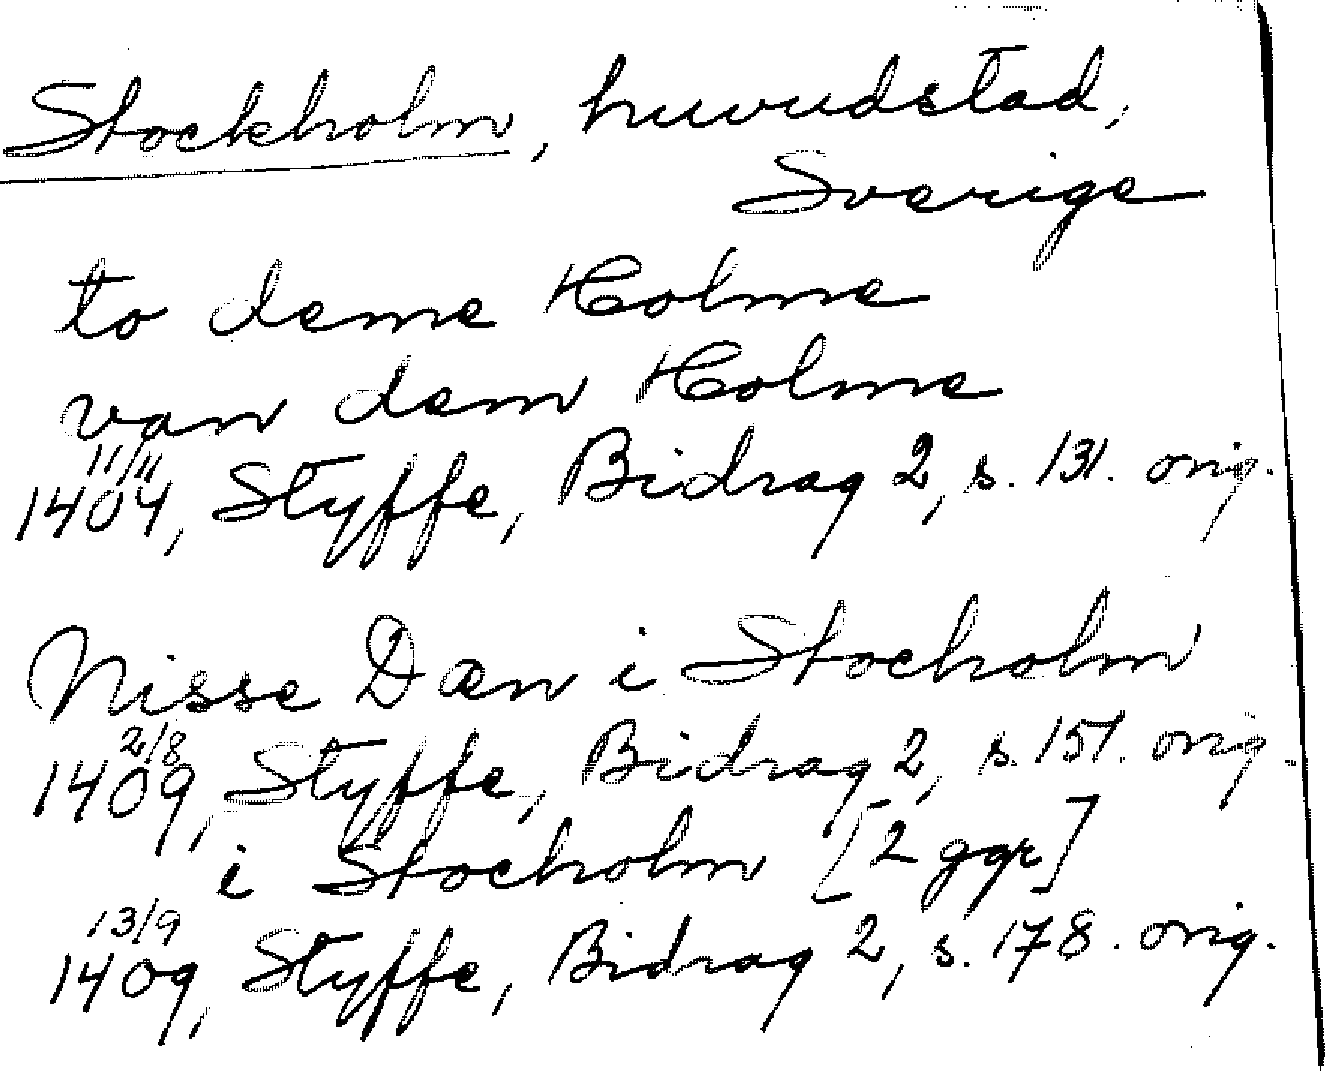 Stockholm, huvudstad,
Sverige
to deme Holme
van dem Holme
11/11
1404, Styffe, Bidrag 2, s. 131. orig.
Nisse Dæn i Stocholm
2/8
1409, Styffe, Bidrag 2, s. 157. orig.
i Stocholm [2 ggr]
13/9
1409, Styffe, Bidrag 2, s. 178. orig.